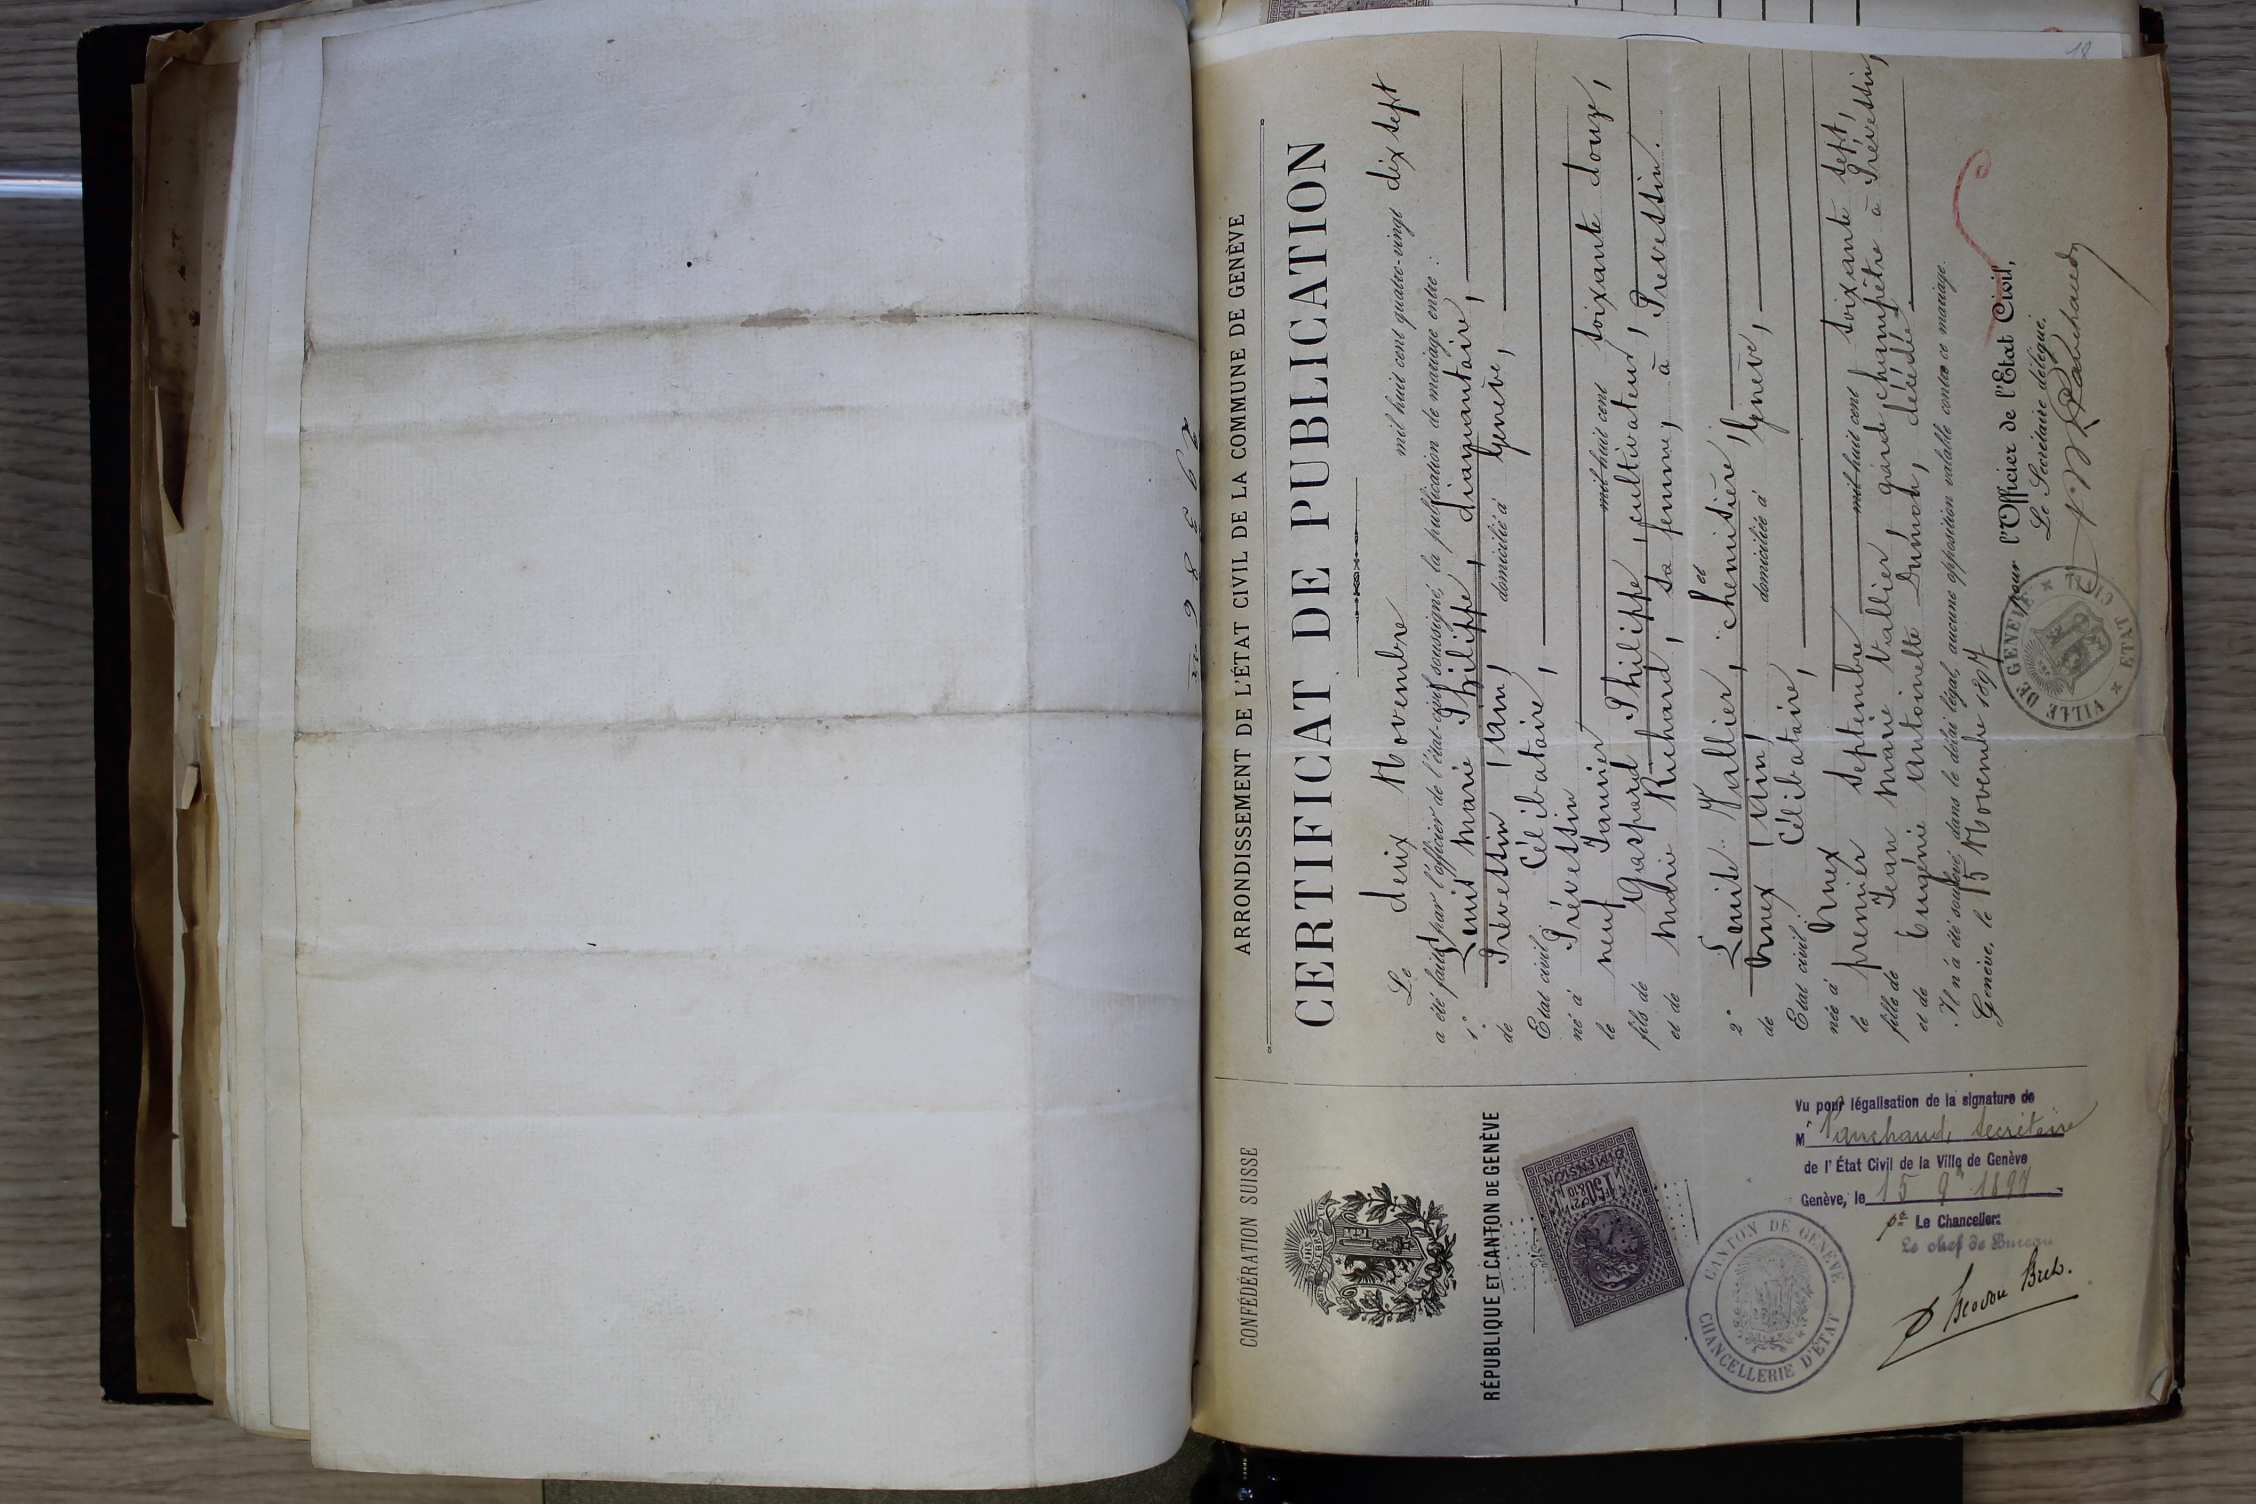 CONFÉDÉRATION SUISSE
RÉPUBLIQUE ET CANTON DE GENÈVE
DIMENSION
1F50c
CANTON DE GENÈVE
CHANCELLERIE D'ÉTAT
Vu pour légalisation de la signature de
Mr Panchaud, Secrétaire
de l'État Civil de la Ville de Genève
Genève, le 15 9 1897
Le Chancelier:
Le chef de Bureau
ARRONDISSEMENT DE L'ÉTAT CIVIL DE LA COMMUNE DE GENÈVE
CERTIFICAT DE PUBLICATION
Le deux Novembre mil huit cent quatre-vingt dix sept
a été faite par l'officier de l'état-civil soussigné, la publication de mariage entre :
1° Louis Marie Philippe, diamantaire,
de Prévessin (Ain) domicilié à Genève,
Etat civil: Célibataire,
né à Prévessin
le neuf Janvier mil huit cent soixante douze,
fils de Gaspard Philippe, cultivateur,
et de Marie Richard, sa femme, à Prevessin.
et
2° Louise Vallier, chemisière,
de Ornex (Ain) domiciliée à Genève,
Etat civil: Célibataire,
née à Ornex
le premier Septembre mil huit cent soixante sept,
fille de Jean Marie Vallier, garde champêtre à Prévessin,
et de Eugénie Antoinette Dumon, décédée.
Il n'a été soulevé, dans le délai légal, aucune opposition valable contre ce mariage.
Genève, le 15 Novembre 1897
pour l'Officier de l'Etat Civil,
Le Secrétaire délégué.
Panchaud
VILLE DE GENÈVE
ETAT CIVIL